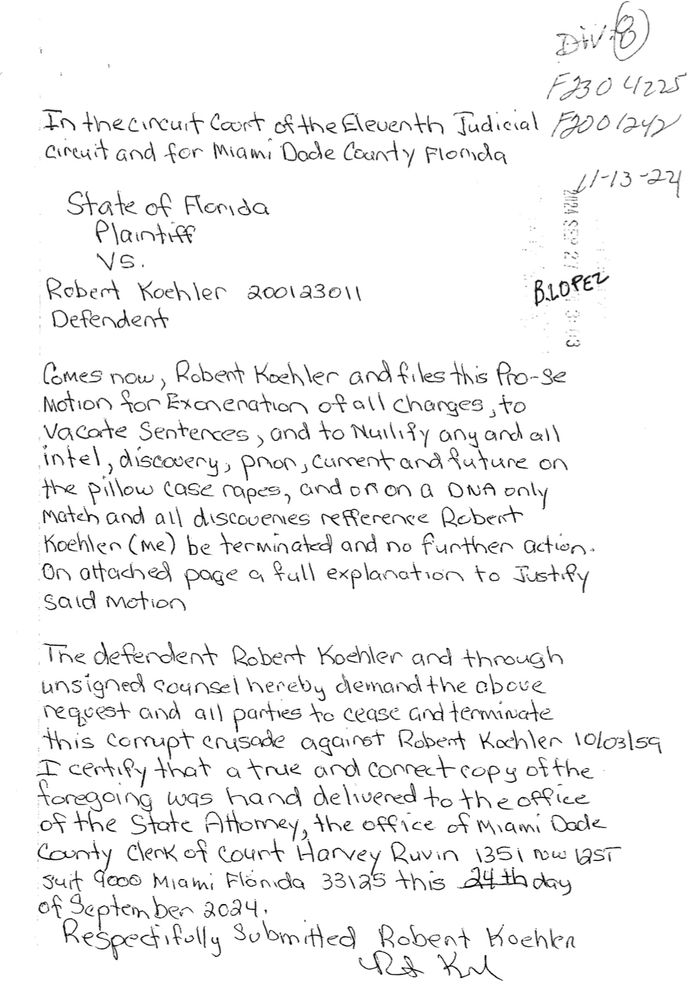 Div. 8
F2304225
F2001242
11-13-24
In the circuit Court of the Eleventh Judicial
circuit and for Miami Dade County Florida
State of Florida
Plaintiff
VS.
2024 SEP 27
B.LOPEZ
Robert Koehler 200123011
Defendent
Comes now, Robert Koehler and files this Pro-se
Motion for Exoneration of all charges, to
Vacate Sentences, and to Nullify any and all
intel, discovery, prior, current and future on
the pillow case rapes, and or on a DNA only
Match and all discoveries refference Robert
Koehler (me) be terminated and no further action.
On attached page a full explanation to Justify
said motion
The defendent Robert Koehler and through
unsigned counsel hereby demand the above
request and all parties to cease and terminate
this corrupt crusade against Robert Koehler 10/03/59
I certify that a true and correct copy of the
foregoing was hand delivered to the office
of the State Attorney, the office of Miami Dade
County Clerk of Court Harvey Ruvin 1351 nw 12ST
suit 9000 Miami Florida 33125 this 24th day
of September 2024.
Respectifully Submitted Robert Koehler